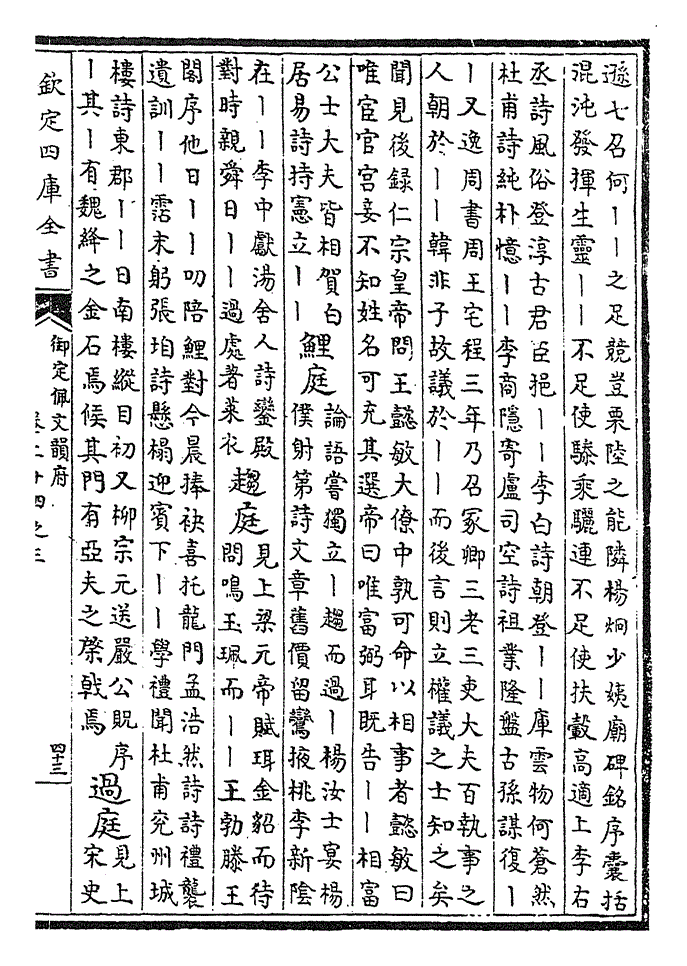 遜七召何丨丨之足競豈栗陸之能隣楊炯少姨廟碑銘序囊括
混沌發揮生靈丨丨不足使驂乘驪連不足使扶轂高適上李右
丞詩風俗登淳古君臣挹丨丨李白詩朝登丨丨庫雲物何蒼然
杜甫詩純朴憶丨丨李商隱寄盧司空詩祖業隆盤古孫謀復丨
丨又逸周書周王宅程三年乃召冢卿三老三吏大夫百執事之
人朝於丨丨韓非子故議於丨丨而後言則立權議之士知之矣
聞見後録仁宗皇帝問王懿敏大僚中孰可命以相事者懿敏曰
唯宦官宮妾不知姓名可充其選帝曰唯富弼耳既告丨丨相富
公士大夫皆相賀白
居易詩持憲立丨丨
鯉庭
論語嘗獨立丨趨而過丨楊汝士宴楊
僕射第詩文章舊價留鸞掖桃李新陰
在丨丨李中獻湯舍人詩鑾殿
對時親舜日丨丨過處著萊衣
趨庭
見上梁元帝賦珥金貂而待
問鳴玉珮而丨丨王勃滕王
閣序他日丨丨叨陪鯉對今晨捧袂喜托龍門孟浩然詩詩禮襲
遺訓丨丨霑末躬張垍詩懸榻迎賓下丨丨學禮聞杜甫兖州城
樓詩東郡丨丨日南樓縱目初又柳宗元送嚴公貺序
丨其丨有魏絳之金石焉俟其門有亞夫之棨戟焉
過庭
見上
宋史
欽定四庫全書
御定佩文韻府
卷二十四之三
四十三